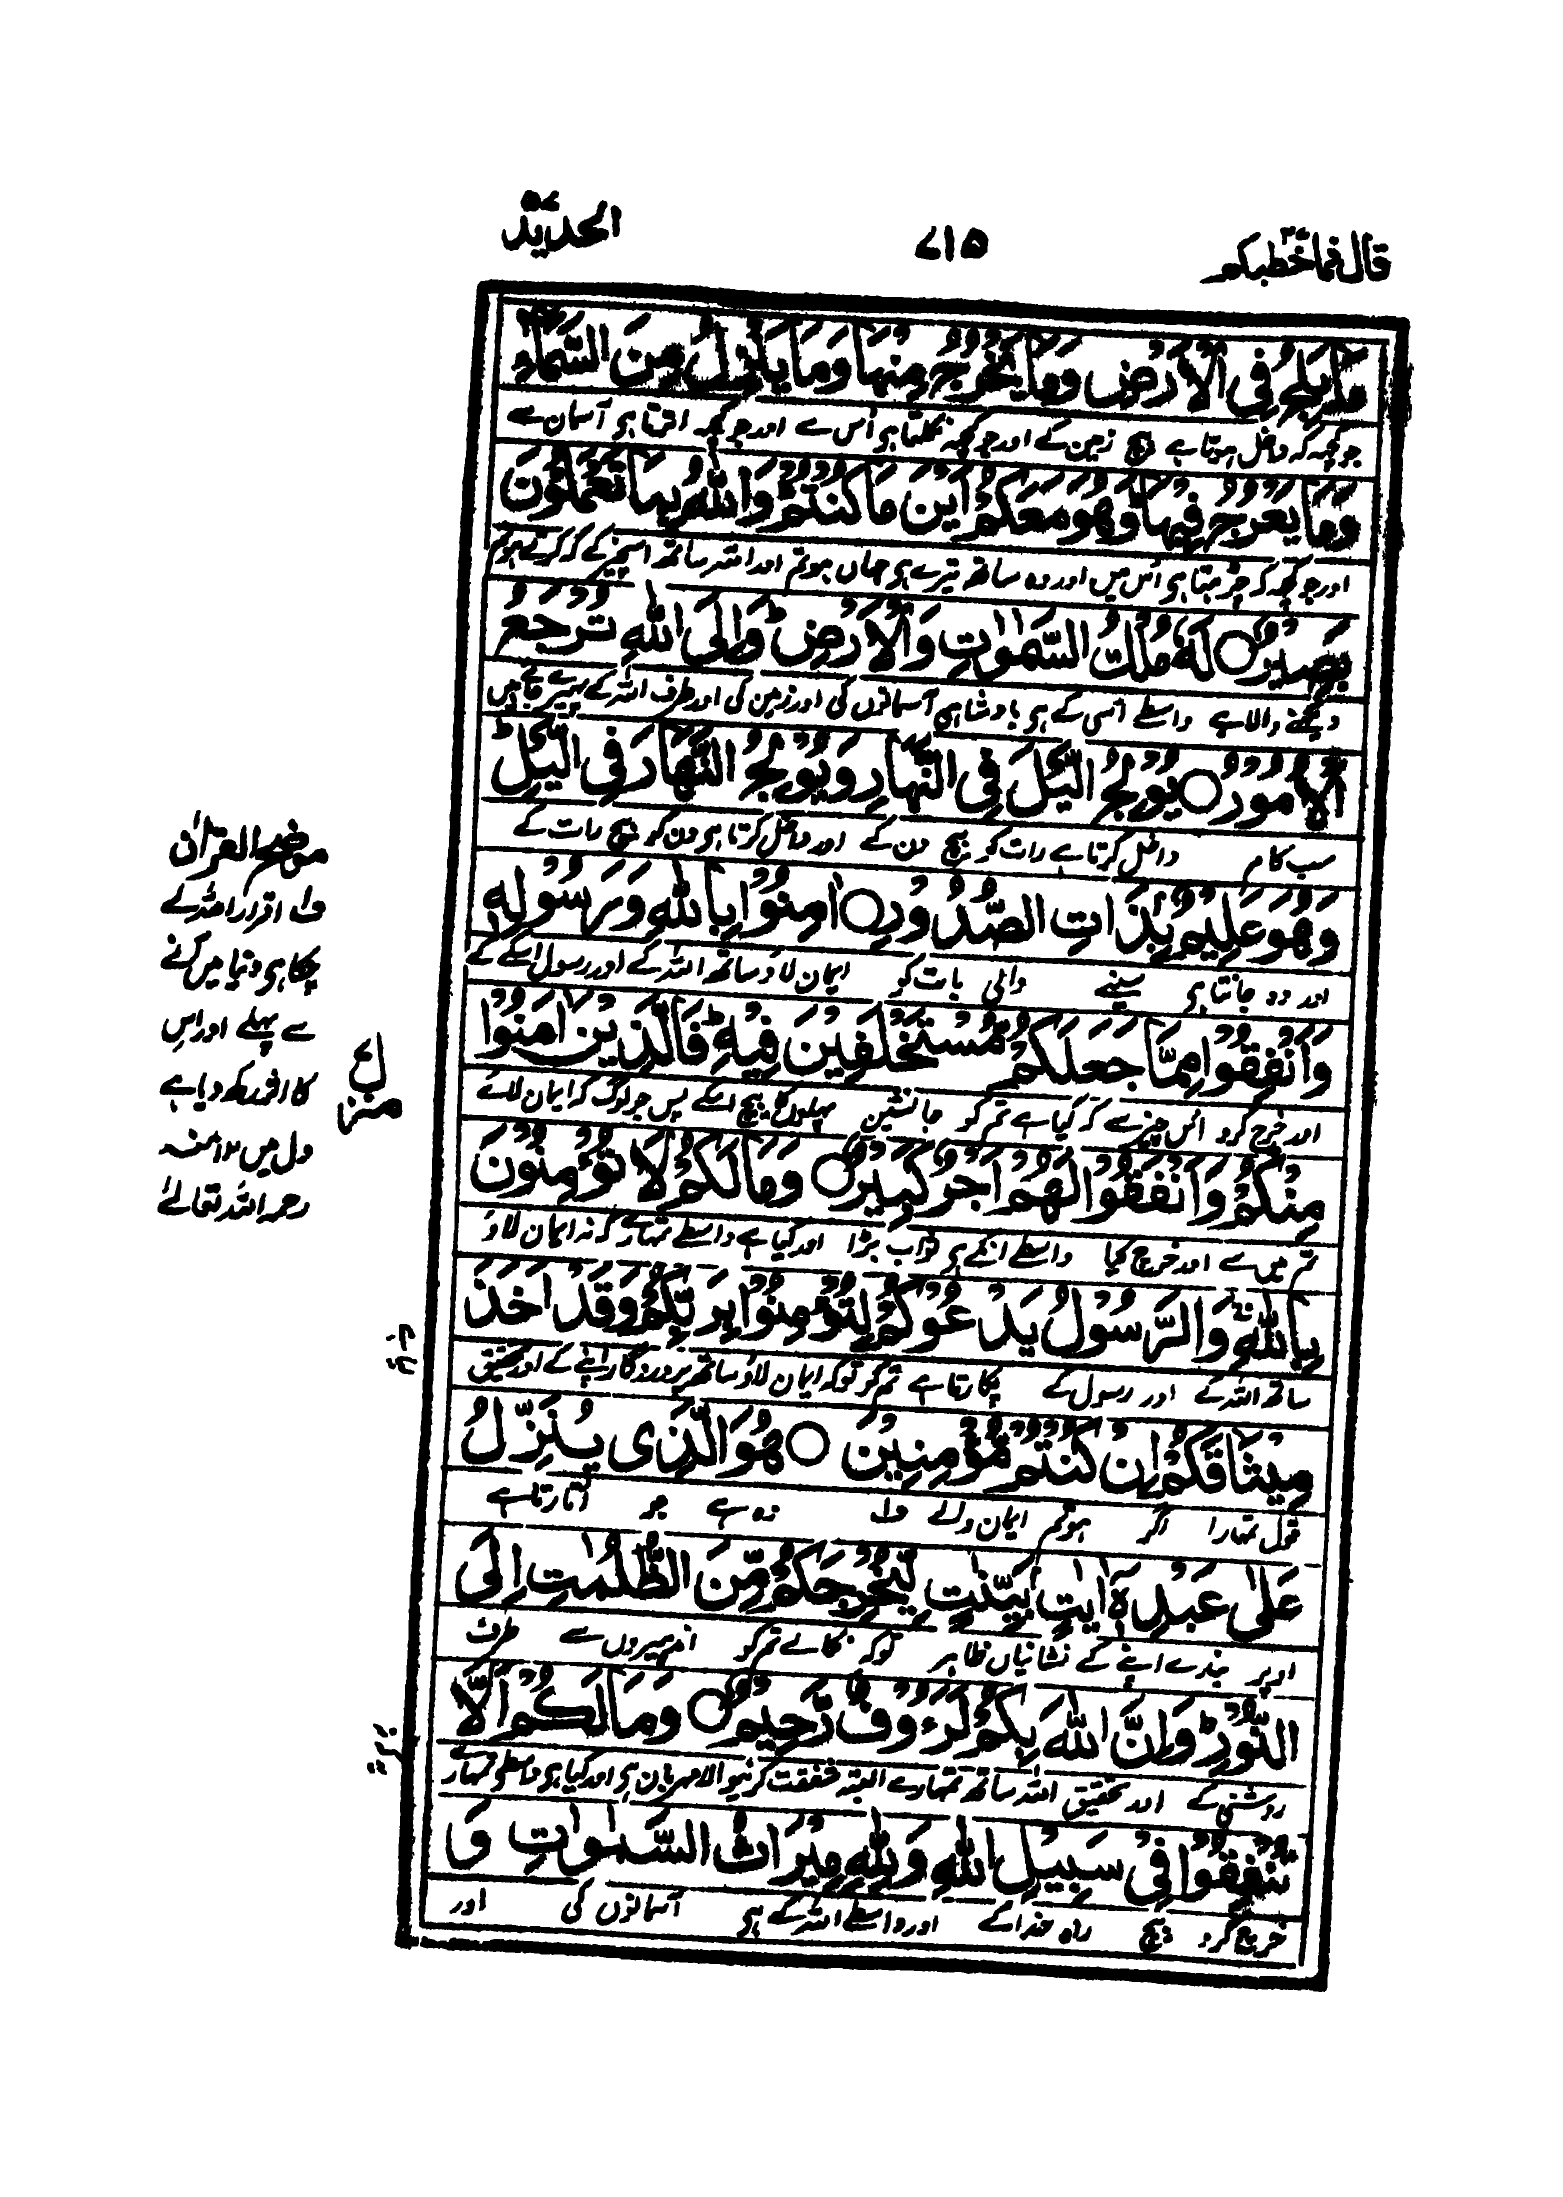 قال فما خطبکم ۲۷
۷۱۵
الحدید ۵۷
مَا يَلِجُ فِي الْاَرْضِ وَمَا يَخْرُجُ مِنْهَا وَمَا يَنْزِلُ مِنَ السَّمَآءِ
جو کچھ کہ داخل ہوتا ہے بیچ زمین کے اور جو کچھ نکلتا ہی اُس سے اور جو کچھ اترتا ہی آسمان سے
وَمَا يَعْرُجُ فِيْهَا وَهُوَ مَعَكُمْ اَيْنَ مَا كُنْتُمْ وَاللّٰهُ بِمَا تَعْمَلُوْنَ
اور جو کچھ کہ چڑہتا ہی اُس میں اور وہ ساتھ تیرے ہی جہاں ہو تم اور اللہ ساتھ اس چیز کے کہ کرتے ہو تم
بَصِيْرٌ ○ لَهٗ مُلْكُ السَّمٰوٰتِ وَالْاَرْضِ ؕ وَاِلَى اللّٰهِ تُرْجَعُ
دیکھنے والا ہے واسطے اُسی کے ہی بادشاہی آسمانوں کی اور زمین کی اور طرف اللہ کے پھیرے جاتے ہیں
الْاُمُوْرُ ○ يُوْلِجُ الَّيْلَ فِي النَّهَارِ وَيُوْلِجُ النَّهَارَ فِي الَّيْلِ ؕ
سب کام داخل کرتا ہے رات کو بیچ دن کے اور داخل کرتا ہی دن کو بیچ رات کے
وَهُوَ عَلِيْمٌۢ بِذَاتِ الصُّدُوْرِ ○ اٰمِنُوْا بِاللّٰهِ وَرَسُوْلِهٖ
اور وہ جانتا ہی سینے والی بات کو ایمان لاؤ ساتھ اللہ کے اور رسول اسکے کے
وَاَنْفِقُوْا مِمَّا جَعَلَكُمْ مُّسْتَخْلَفِيْنَ فِيْهِ ؕ فَالَّذِيْنَ اٰمَنُوْا
اور خرچ کرو اُس چیز سے کہ کیا ہے تم کو جانشین پہلوں کا بیچ اسکے پس جو لوگ کہ ایمان لائے
مِنْكُمْ وَاَنْفَقُوْا لَهُمْ اَجْرٌ كَبِيْرٌ ○ وَمَا لَكُمْ لَا تُؤْمِنُوْنَ
تم میں سے اور خرچ کیا واسطے انکے ہی ثواب بڑا اور کیا ہے واسطے تمہارے کہ نہ ایمان لاؤ
بِاللّٰهِ ۚ وَالرَّسُوْلُ يَدْعُوْكُمْ لِتُؤْمِنُوْا بِرَبِّكُمْ وَقَدْ اَخَذَ
ساتھ اللہ کے اور رسول کے پکارتا ہے تم کو تو کہ ایمان لاؤ ساتھ پروردگار اپنے کے اور تحقیق
مِيْثَاقَكُمْ اِنْ كُنْتُمْ مُّؤْمِنِيْنَ ○ هُوَ الَّذِيْ يُنَزِّلُ
قول تمہارا اگر ہو تم ایمان والے ف۱ وہ ہے جو اُتارتا ہے
عَلٰى عَبْدِهٖۤ اٰيٰتٍۭ بَيِّنٰتٍ لِّيُخْرِجَكُمْ مِّنَ الظُّلُمٰتِ اِلَى
اوپر بندے اپنے کے نشانیاں ظاہر تو کہ نکالے تم کو اندھیروں سے طرف
النُّوْرِ ؕ وَاِنَّ اللّٰهَ بِكُمْ لَرَءُوْفٌ رَّحِيْمٌ ○ وَمَا لَكُمْ اَلَّا
روشنی کے اور تحقیق اللہ ساتھ تمہارے البتہ شفقت کرنیوالا مہربان ہی اور کیا ہی واسطے تمہارے
تُنْفِقُوْا فِيْ سَبِيْلِ اللّٰهِ وَلِلّٰهِ مِيْرَاثُ السَّمٰوٰتِ وَ
خرچ کرو بیچ راہ خدا کے اور واسطے اللہ کے ہی آسمانوں کی اور
موضح القرآن
ف۱ اقرار اللہ کے
چکا ہی دنیا میں کرنے
سے پہلے اور اس
کا اثر رکھ دیا ہے
دل میں ۱۲ منہ
رحمہ اللہ تعالےٰ
منزل ۷